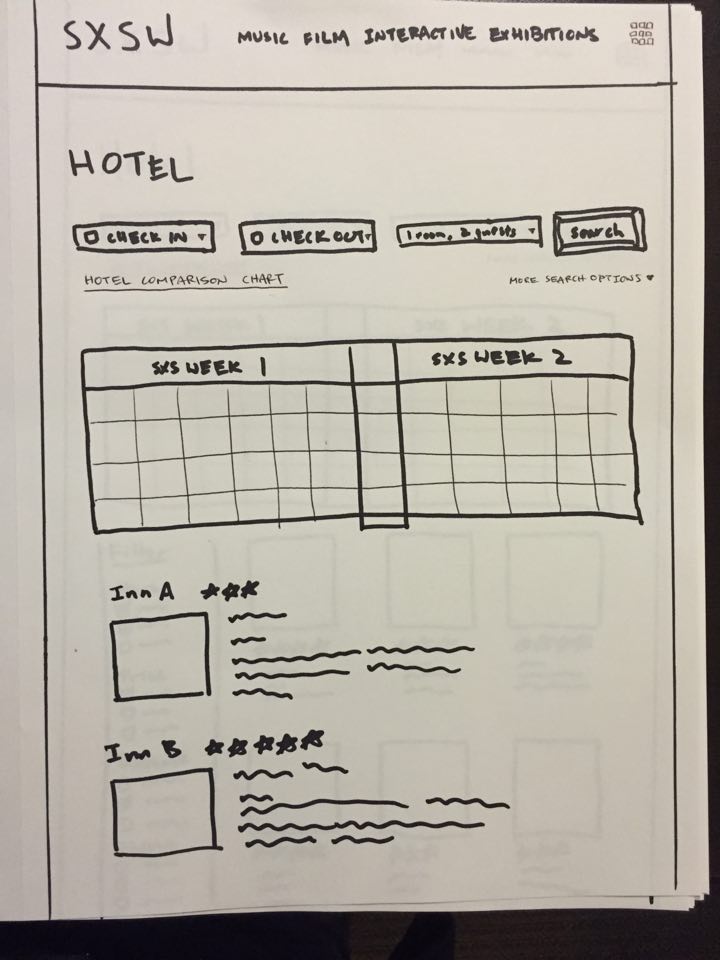 SXSW MUSIC FILM INTERACTIVE EXHIBITIONS
HOTEL
CHECK IN CHECK OUT 1 room, 2 guests Search
HOTEL COMPARISON CHART MORE SEARCH OPTIONS
SXS WEEK 1 SXS WEEK 2
Inn A
Inn B